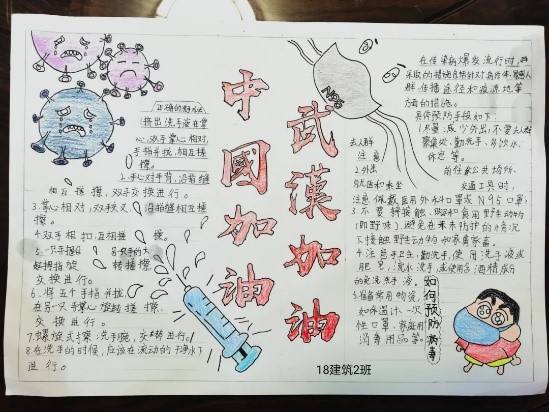 正确的洗手方法
1.挤出洗手液在掌
心,双手掌心相对,
手指并拢,相互揉
搓。
2.手心对手背,沿指缝
相互揉搓,双手交换进行。
3.掌心相对,双手交叉,沿指缝相互揉
搓。
4.双手相扣,互相揉搓。
5.一只手握
另一只手的大
拇指旋转揉搓
交换进行。
6.将五个手指并拢,
在另一只手掌心旋转揉搓
交换进行。
7.螺旋式擦洗手腕,交替进行。
8.在洗手的时候,应该在流动的干净水下
进行。
中國加油
武漢加油
N95
在传染病爆发流行时,
采取的措施
群,传播途径和疫源地等
方面的措施。
具体预防手段如下:
1.尽量减少外出,不要去人群
聚集处,勤洗手、多饮水、
休息等。
去人群
注意
2.外出
前往公共场所、
就医和乘坐
交通工具时,
注意佩戴医用外科口罩或N95口罩,
3.不要接触、购买和食用野生动物
(即野味),避免在未防护的情况
下接触野生动物和家禽家畜。
4.注意手卫生,勤洗手,使用洗手液或
肥皂,流水洗手,或使用含酒精成分
的免洗洗手液。
5.准备常用物资,
如体温计、一次
性口罩、家庭用
消毒用品等。
如何预防病毒
18建筑2班